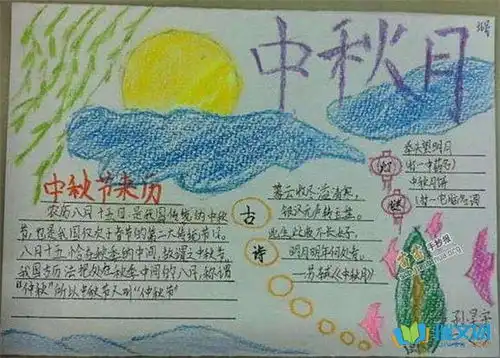 中秋月
中秋节来历
农历八月十五日,是我国传统的中秋
节,也是我国仅次于春节的第二大传统节日。
八月十五恰在秋季的中间,故谓之中秋节。
我国古历法把处在秋季中间的八月,称谓
“仲秋”所以中秋节又叫“仲秋节”
古
诗
暮云收尽溢清寒,
银汉无声转玉盘。
此生此夜不长好,
明月明年何处看。
—苏轼《中秋月》
灯
谜
举头望明月
(打一中药名)
中秋月饼
(打一电脑名词